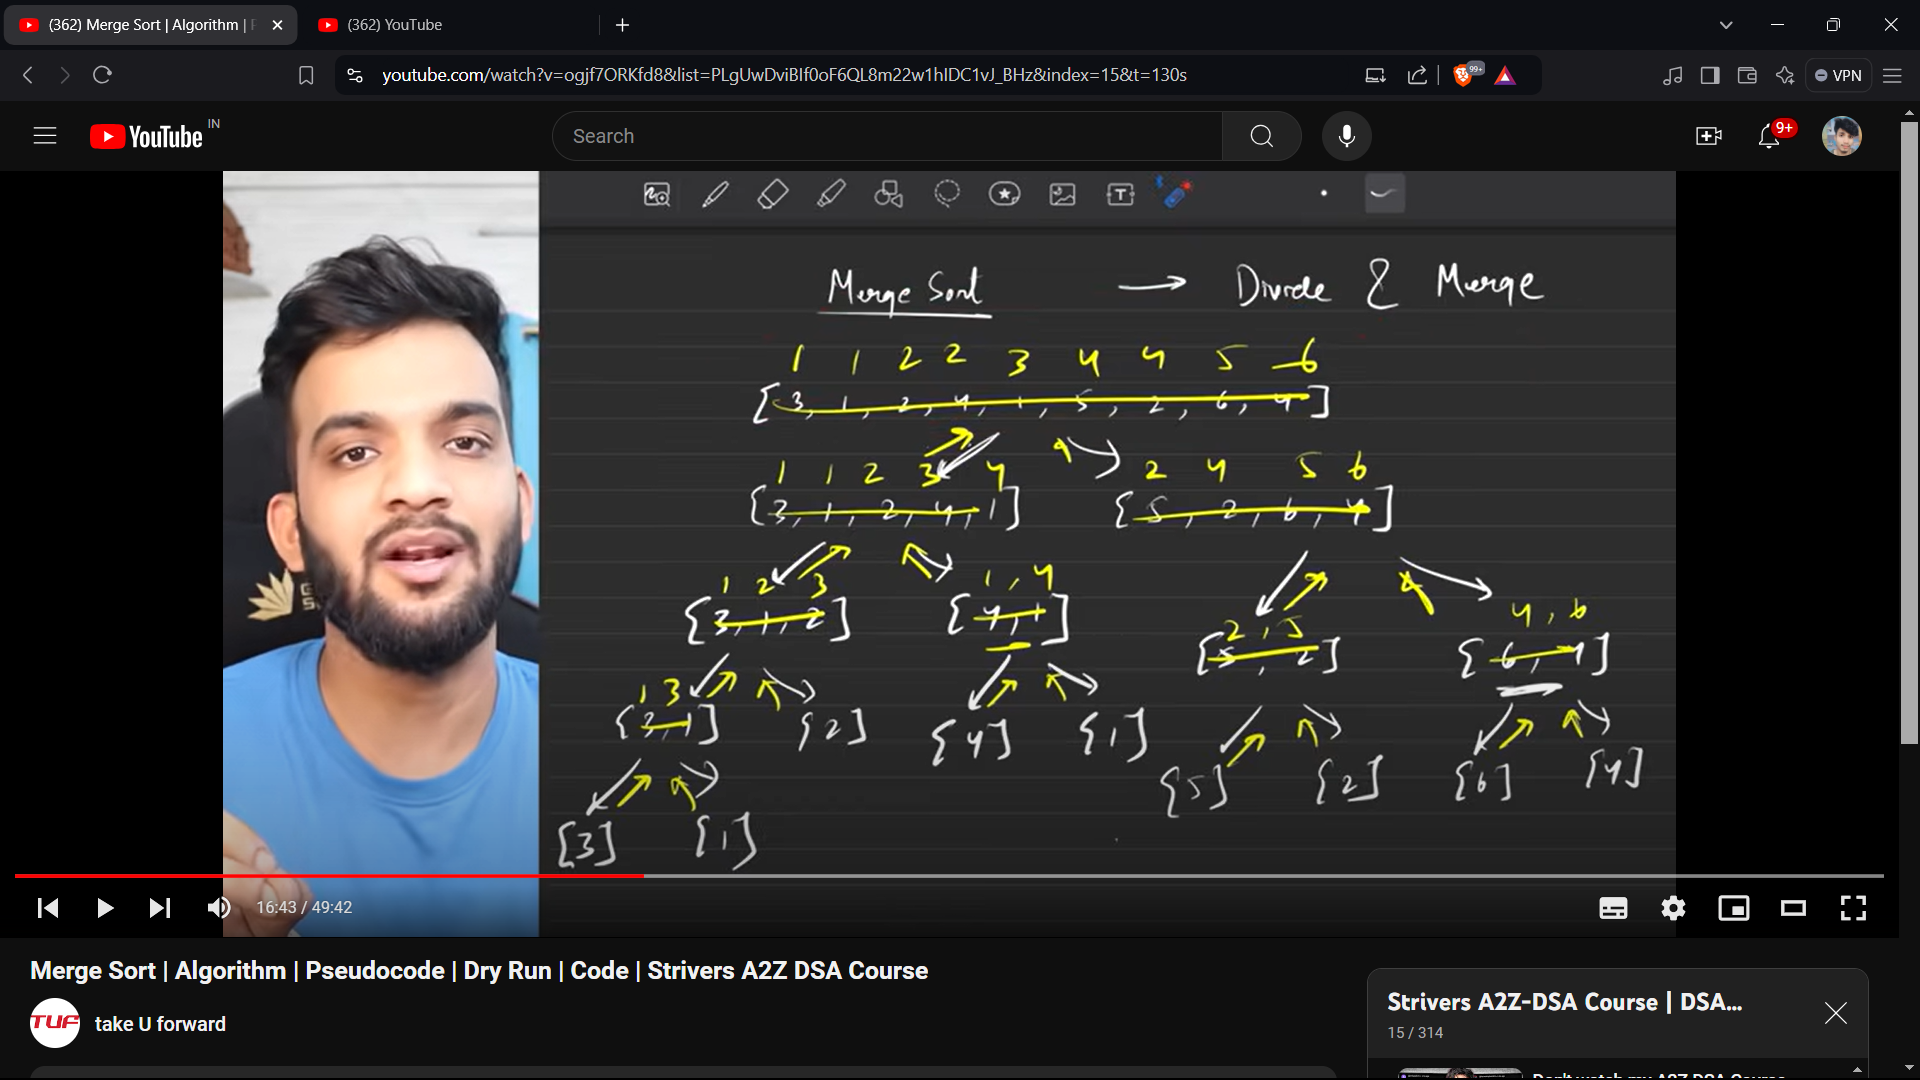 (362) Merge Sort | Algorithm |
(362) YouTube
youtube.com/watch?v=ogjf7ORKfd8&list=PLgUwDviBIf0oF6QL8m22w1hIDC1vJ_BHz&index=15&t=130s
99+
VPN
YouTube IN
Search
9+
Merge Sort → Divide & Merge
1 1 2 2 3 4 4 5 6
[3, 1, 2, 4, 1, 5, 2, 6, 4]
1 1 2 3 4
2 4 5 6
[3, 1, 2, 4, 1]
[5, 2, 6, 4]
1 2 3
1, 4
[3, 1, 2]
[4, 1]
2, 5
4, 6
[5, 2]
[6, 4]
1 3
[3, 1]
[2]
[4]
[1]
[5]
[2]
[6]
[4]
[3]
[1]
16:43 / 49:42
Merge Sort | Algorithm | Pseudocode | Dry Run | Code | Strivers A2Z DSA Course
TUF
take U forward
Strivers A2Z-DSA Course | DSA...
15 / 314
Don't watch my A2Z DSA Course